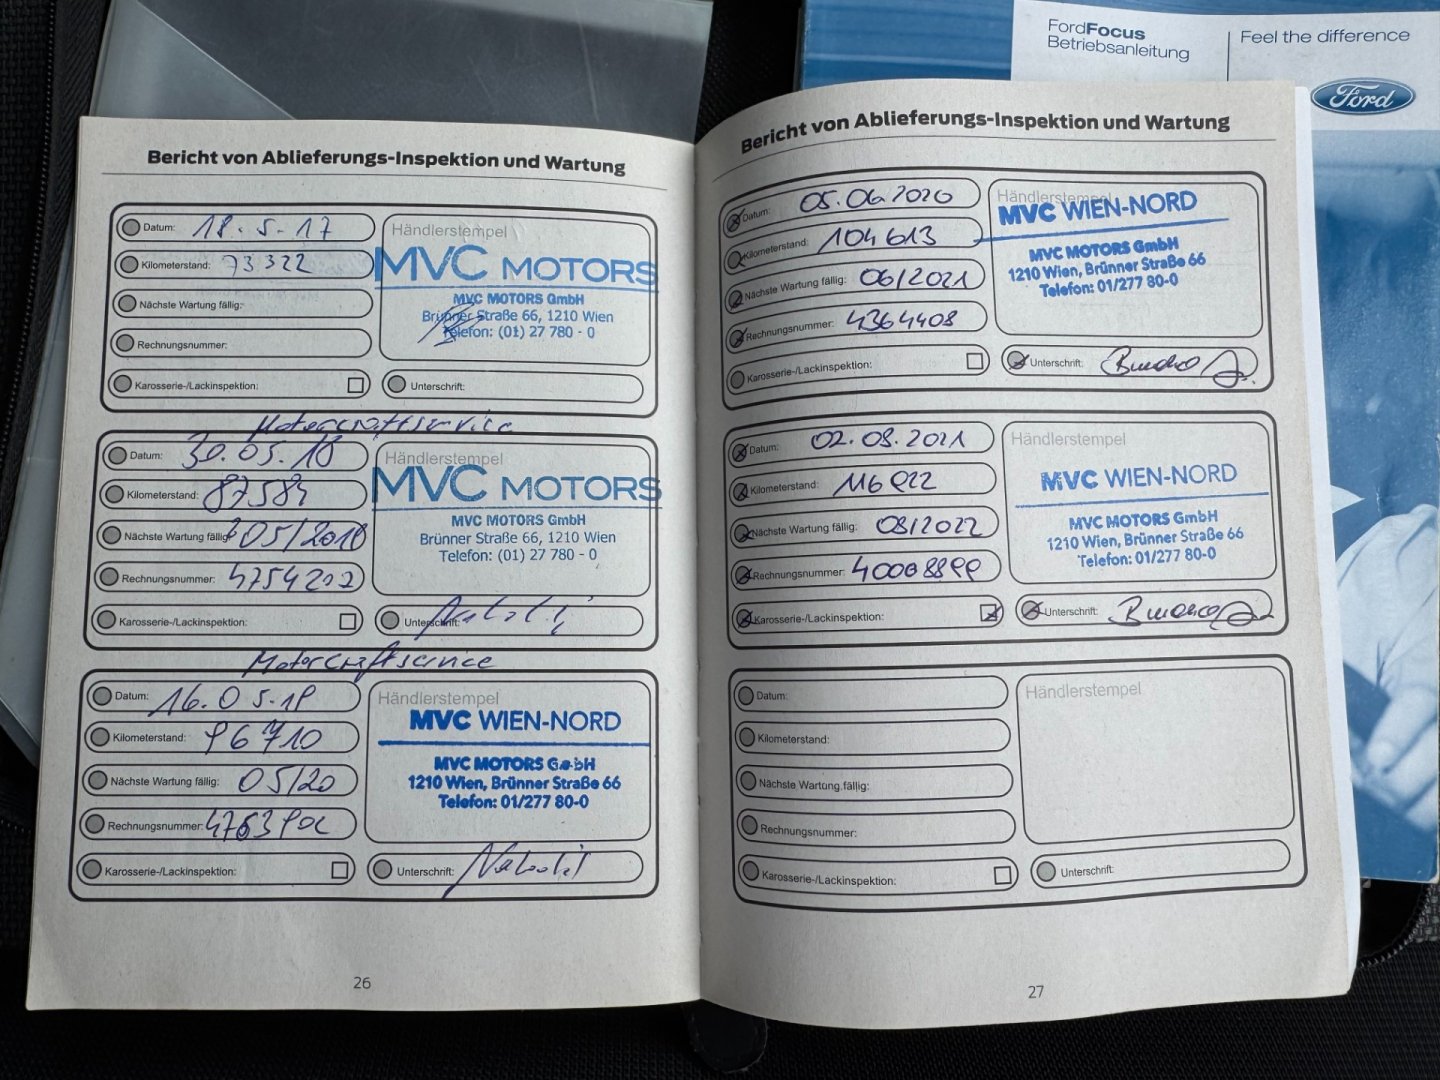 FordFocus
Betriebsanleitung
Feel the difference
Ford
Bericht von Ablieferungs-Inspektion und Wartung
Datum: 18.5.17
Kilometerstand: 73322
Nächste Wartung fällig:
Rechnungsnummer:
Karosserie-/Lackinspektion:
Händlerstempel
MVC MOTORS
MVC MOTORS GmbH
Brünner Straße 66, 1210 Wien
Telefon: (01) 27 780 - 0
Unterschrift:
Motorcraftservice
Datum: 30.05.18
Kilometerstand: 87584
Nächste Wartung fällig: 05/2019
Rechnungsnummer: 4754202
Karosserie-/Lackinspektion:
Händlerstempel
MVC MOTORS
MVC MOTORS GmbH
Brünner Straße 66, 1210 Wien
Telefon: (01) 27 780 - 0
Unterschrift:
Motorcraftservice
Datum: 16.05.19
Kilometerstand: 96710
Nächste Wartung fällig: 05/20
Rechnungsnummer:
Karosserie-/Lackinspektion:
Händlerstempel
MVC WIEN-NORD
MVC MOTORS GmbH
1210 Wien, Brünner Straße 66
Telefon: 01/277 80-0
Unterschrift:
26
Bericht von Ablieferungs-Inspektion und Wartung
Datum: 05.06.2020
Kilometerstand: 104613
Nächste Wartung fällig: 06/2021
Rechnungsnummer: 4364408
Karosserie-/Lackinspektion:
Händlerstempel
MVC WIEN-NORD
MVC MOTORS GmbH
1210 Wien, Brünner Straße 66
Telefon: 01/277 80-0
Unterschrift:
Datum: 02.08.2021
Kilometerstand: 116922
Nächste Wartung fällig: 08/2022
Rechnungsnummer: 40008899
Karosserie-/Lackinspektion:
Händlerstempel
MVC WIEN-NORD
MVC MOTORS GmbH
1210 Wien, Brünner Straße 66
Telefon: 01/277 80-0
Unterschrift:
Datum:
Kilometerstand:
Nächste Wartung fällig:
Rechnungsnummer:
Karosserie-/Lackinspektion:
Händlerstempel
Unterschrift:
27